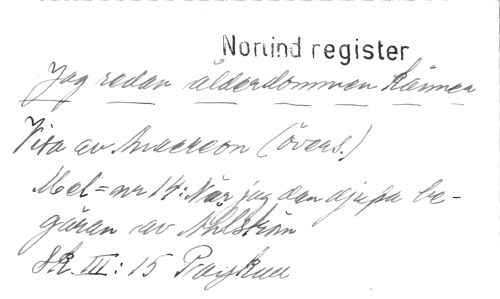 Norlind register
Jag redan ålderdommen känner
Visa av Anacreon (övers.)
Mel = nr 14: När jag den djupa be-
gäran av Ahlström
Sk. III: 15